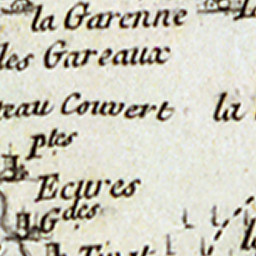 la Garenne
des Gareaux
teau Couvert
la
Ptes
Ecures
Gdes